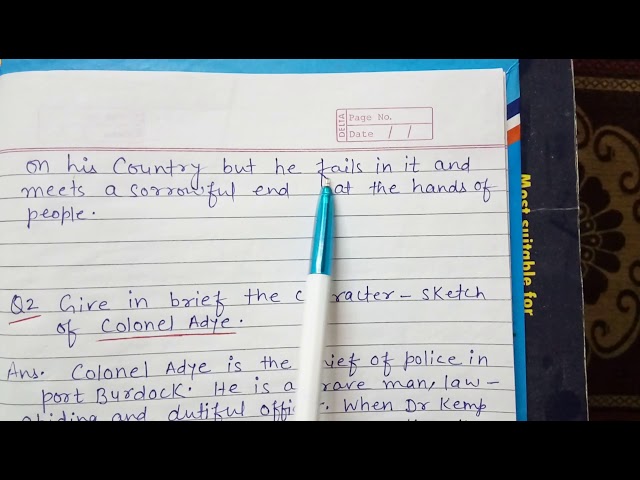 DELTA
Page No.
Date / /
on his Country but he fails in it and
meets a sorrowful end at the hands of
people.
Q2 Give in brief the c racter - sketch
of Colonel Adye.
Ans. Colonel Adye is the ief of police in
port Burdock. He is a rave man, law -
abiding and dutiful offi r. When Dr Kemp
Most suitable for